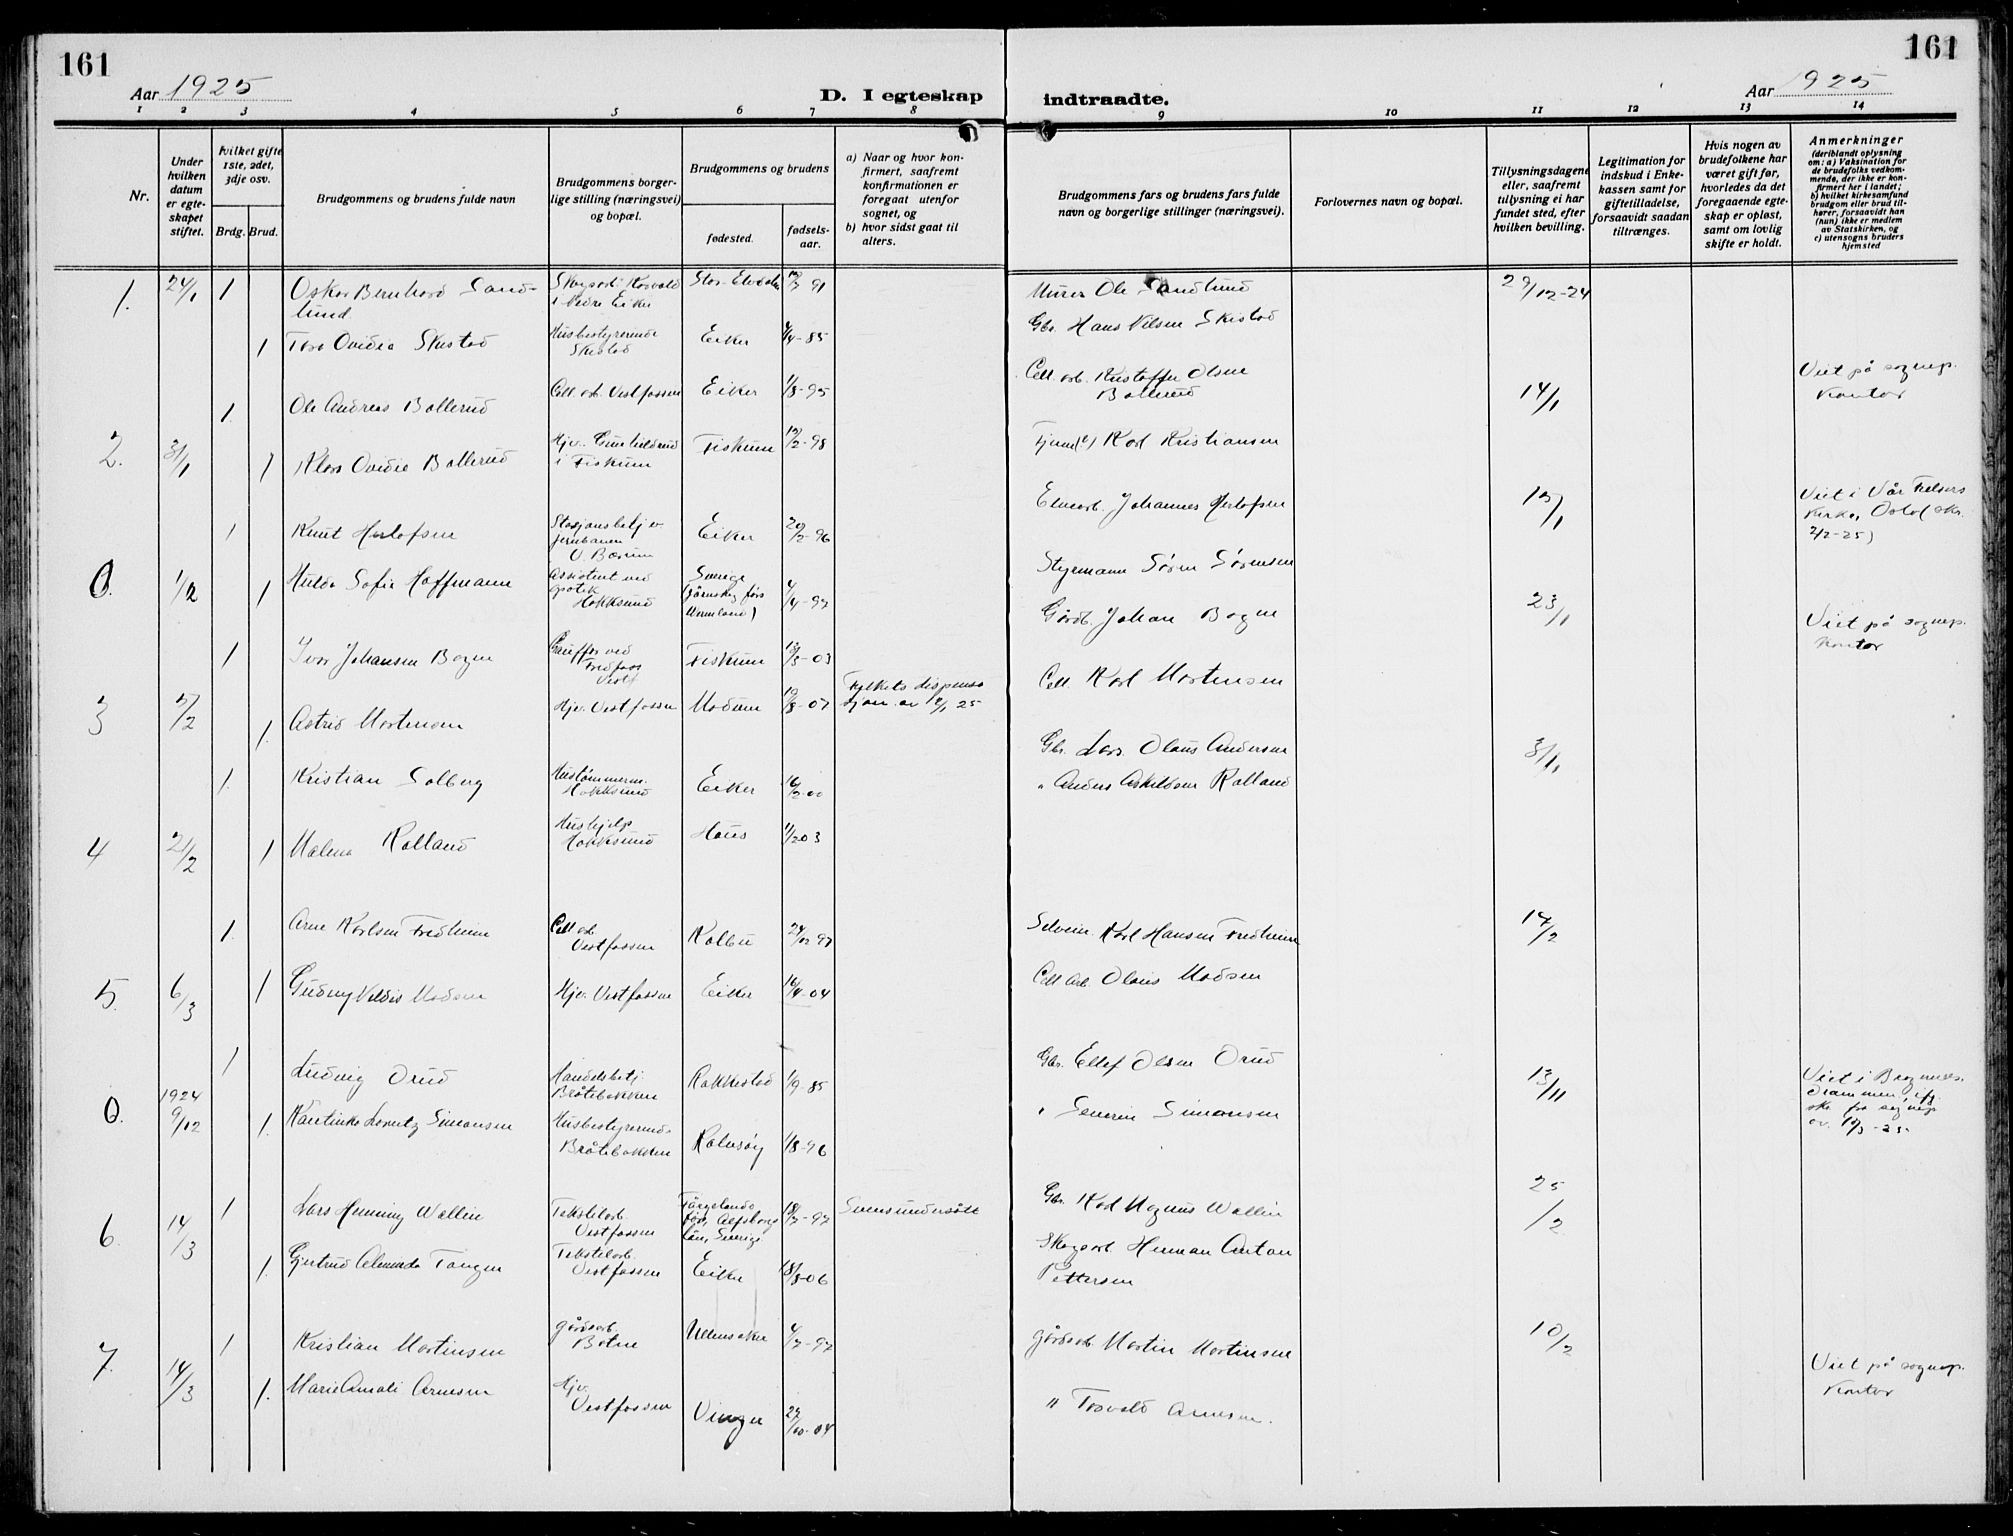 161
161
Aar 1925
D. I egteskap
indtraadte.
Aar 1925
1 2 3 4 5 6 7 8 9 10 11 12 13 14
Nr.
Under hvilken datum er egteskapet stiftet.
hvilket gifte 1ste, 2det, 3dje osv.
Brdg. Brud.
Brudgommens og brudens fulde navn
Brudgommens borgerlige stilling (næringsvei) og bopæl.
Brudgommens og brudens
fødested.
fødselsaar.
a) Naar og hvor konfirmert, saafremt konfirmationen er foregaat utenfor sognet, og
b) hvor sidst gaat til alters.
Brudgommens fars og brudens fars fulde navn og borgerlige stillinger (næringsvei).
Forlovernes navn og bopæl.
Tillysningsdagene eller, saafremt tillysning ei har fundet sted, efter hvilken bevilling.
Legitimation for indskud i Enkekassen samt for giftetilladelse, forsaavidt saadan tiltrænges.
Hvis nogen av brudefolkene har været gift før, hvorledes da det foregaaende egteskap er opløst, samt om lovlig skifte er holdt.
Anmerkninger
(deriblandt oplysning om: a) Vaksination for de brudefolks vedkommende, der ikke er konfirmert her i landet; b) hvilket kirkesamfund brudgom eller brud tilhører, forsaavidt han (hun) ikke er medlem av Statskirken, og c) utensogns bruders hjemsted
1. 24/1 1 Oskar Bernhard Sandlund
i Nedre Eiker
Stor-Elvdalen
91
Murer Ole Sandlund
29/12-24
1 Tora Ovidia Skistad
Husbestyrerinde Skistad
Eiker
4-85
Gbr. Hans Nilsen Skistad
2. 31/1 1 Ole Andreas Bollerud
Cell. arb. Vestfossen
Eiker
1/8-95
Cell. arb. Kristoffer Olsen Bollerud
14/1
Viet på sognep. kontor
1 Klara Ovidia Bollerud
Hjv. Gunhildrud i Fiskum
Fiskum
2-98
Karl Kristiansen
0. 1/2 1 Knut Herlofsen
Stasjonsbetj. v. jernbanen V. Bærum
Eiker
20/2-96
Elvearb. Johannes Herlofsen
15/1
Viet i Vår Frelsers kirke, Oslo
2/2-25)
1 Hulda Sofie Hoffmann
Assistent ved apotek Hokksund
Sverige
Vermland)
4-97
Styrmann Søren Sørensen
3 5/2 1 Ivar Johansen Bogen
ved Fredfoss Vestf
Fiskum
03
Gårdb. Johan Bogen
23/1
Viet på sognep. kontor
1. Astrid Mortensen
Hjv. Vestfossen
Modum
8-07
Fylkets dispensasjon av
25
Cell. Karl Mortensen
4 21/2 1. Kristian Solberg
Hustømmerm. Hokksund
Eiker
16/2-00
Gbr. Lars Olaus Andersen
31/1
1 Malena Rolland
Hushjelp Hokksund
Haus
1/2 03
" Anders Askildsen Rolland
5. 6/3 1. Arne Karlsen Fredheim
Cell arb. Vestfossen
Kolbu
24/12 97
Karl Hansen Fredheim
14/2
1 Gudny Valdis Madsen
Hjv. Vestfossen
Eiker
16/4-04
Cell arb. Olaus Madsen
0. 1924 9/12 1 Ludvig Orud
Handelsbetj. Bråtebakken
Rakkestad
1/9-85
Gbr. Ellef Olsen Orud
13/11
Viet i Bragernes, Drammen, ifg. ske. fra sognep. av
-25.
1. Kantinka Lorentz Simonsen
Husbestyrerinde Bråtebakken
Rolvsøy
1/8-96
" Severin Simonsen
6. 14/3 1 Lars Henning Wallin
Tekstilarb. Vestfossen
Elfsborgs län, Sverige
18/7-97
Svensk undersått
Gbr. Karl Magnus Wallin
25/2
1. Gjertrud Almenda Tangen
Tekstilarb. Vestfossen
Eiker
18/8-06
Skogsarb. Herman Anton Pettersen
7. 14/3 1 Kristian Martinsen
gårdsarb. Botne
Ullensaker
4/7-97
gårdsarb. Martin Martinsen
10/2
Viet på sognep. kontor
1. Marie Amali Arnesen
Hjv. Vestfossen
Vinger
27/10-04
" Torvald Arnesen.